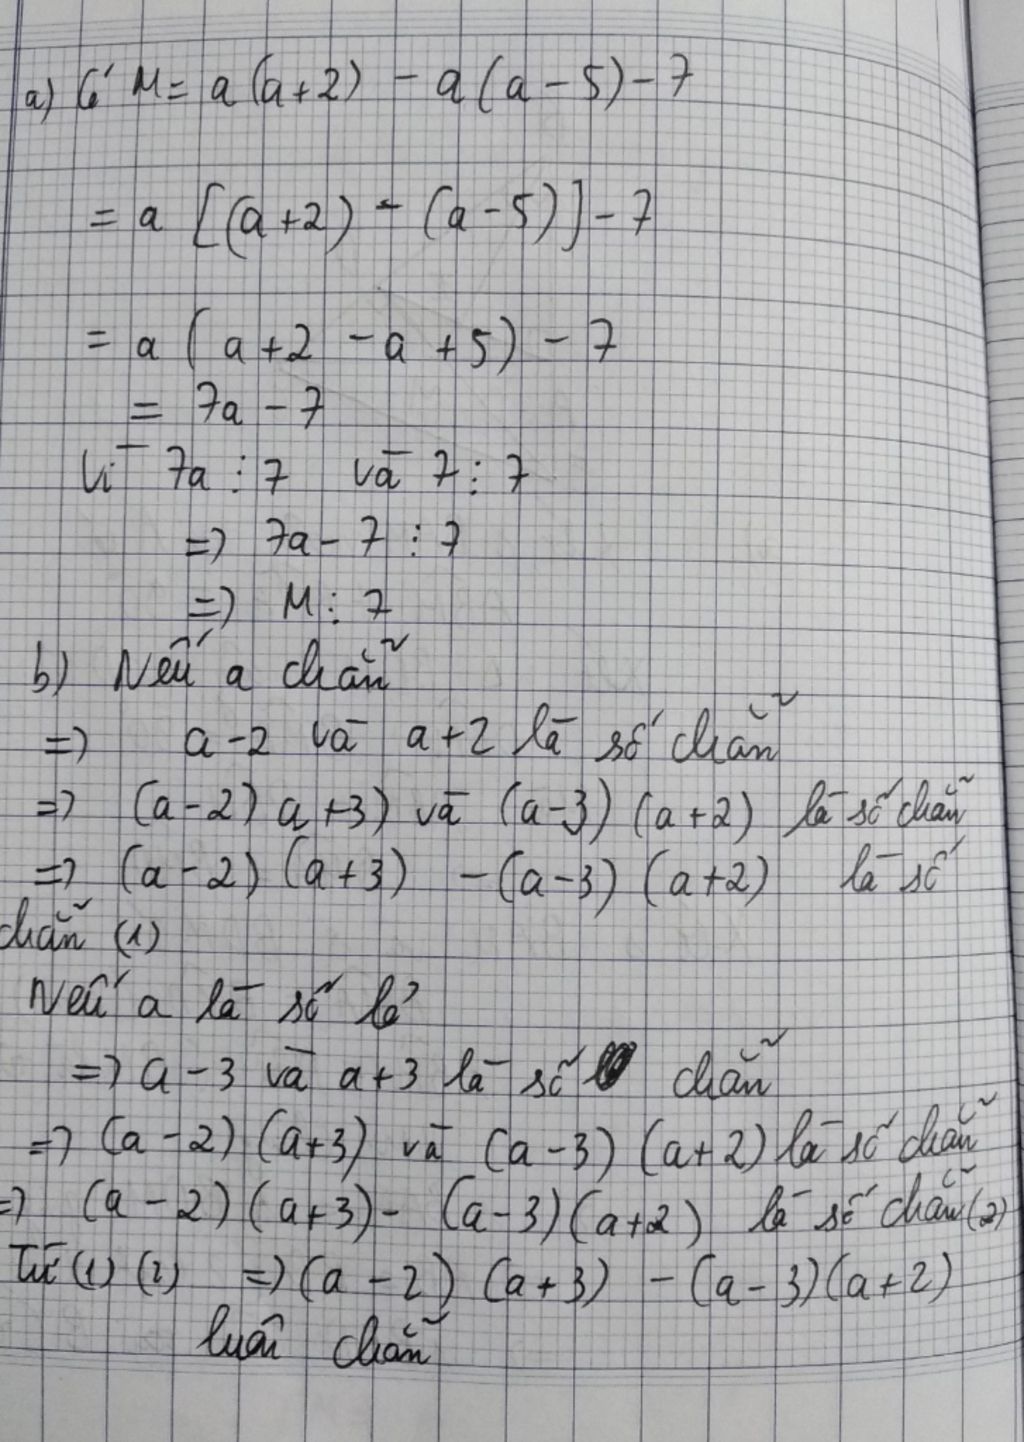 a) Có M = a(a+2) - a(a-5) - 7
= a [(a+2) - (a-5)] - 7
= a (a+2 - a + 5) - 7
= 7a - 7
Vì 7a ⋮ 7 và 7 ⋮ 7
=> 7a - 7 ⋮ 7
=> M ⋮ 7
b) Nếu a chẵn
=> a-2 và a+2 là số chẵn
=> (a-2) a+3) và (a-3) (a+2) là số chẵn
=> (a-2) (a+3) - (a-3) (a+2) là số
chẵn (1)
Nếu a là số lẻ
=> a-3 và a+3 là số chẵn
=> (a-2) (a+3) và (a-3) (a+2) là số chẵn
=> (a-2) (a+3) - (a-3) (a+2) là số chẵn (2)
Từ (1) (2) => (a-2) (a+3) - (a-3) (a+2)
luôn chẵn